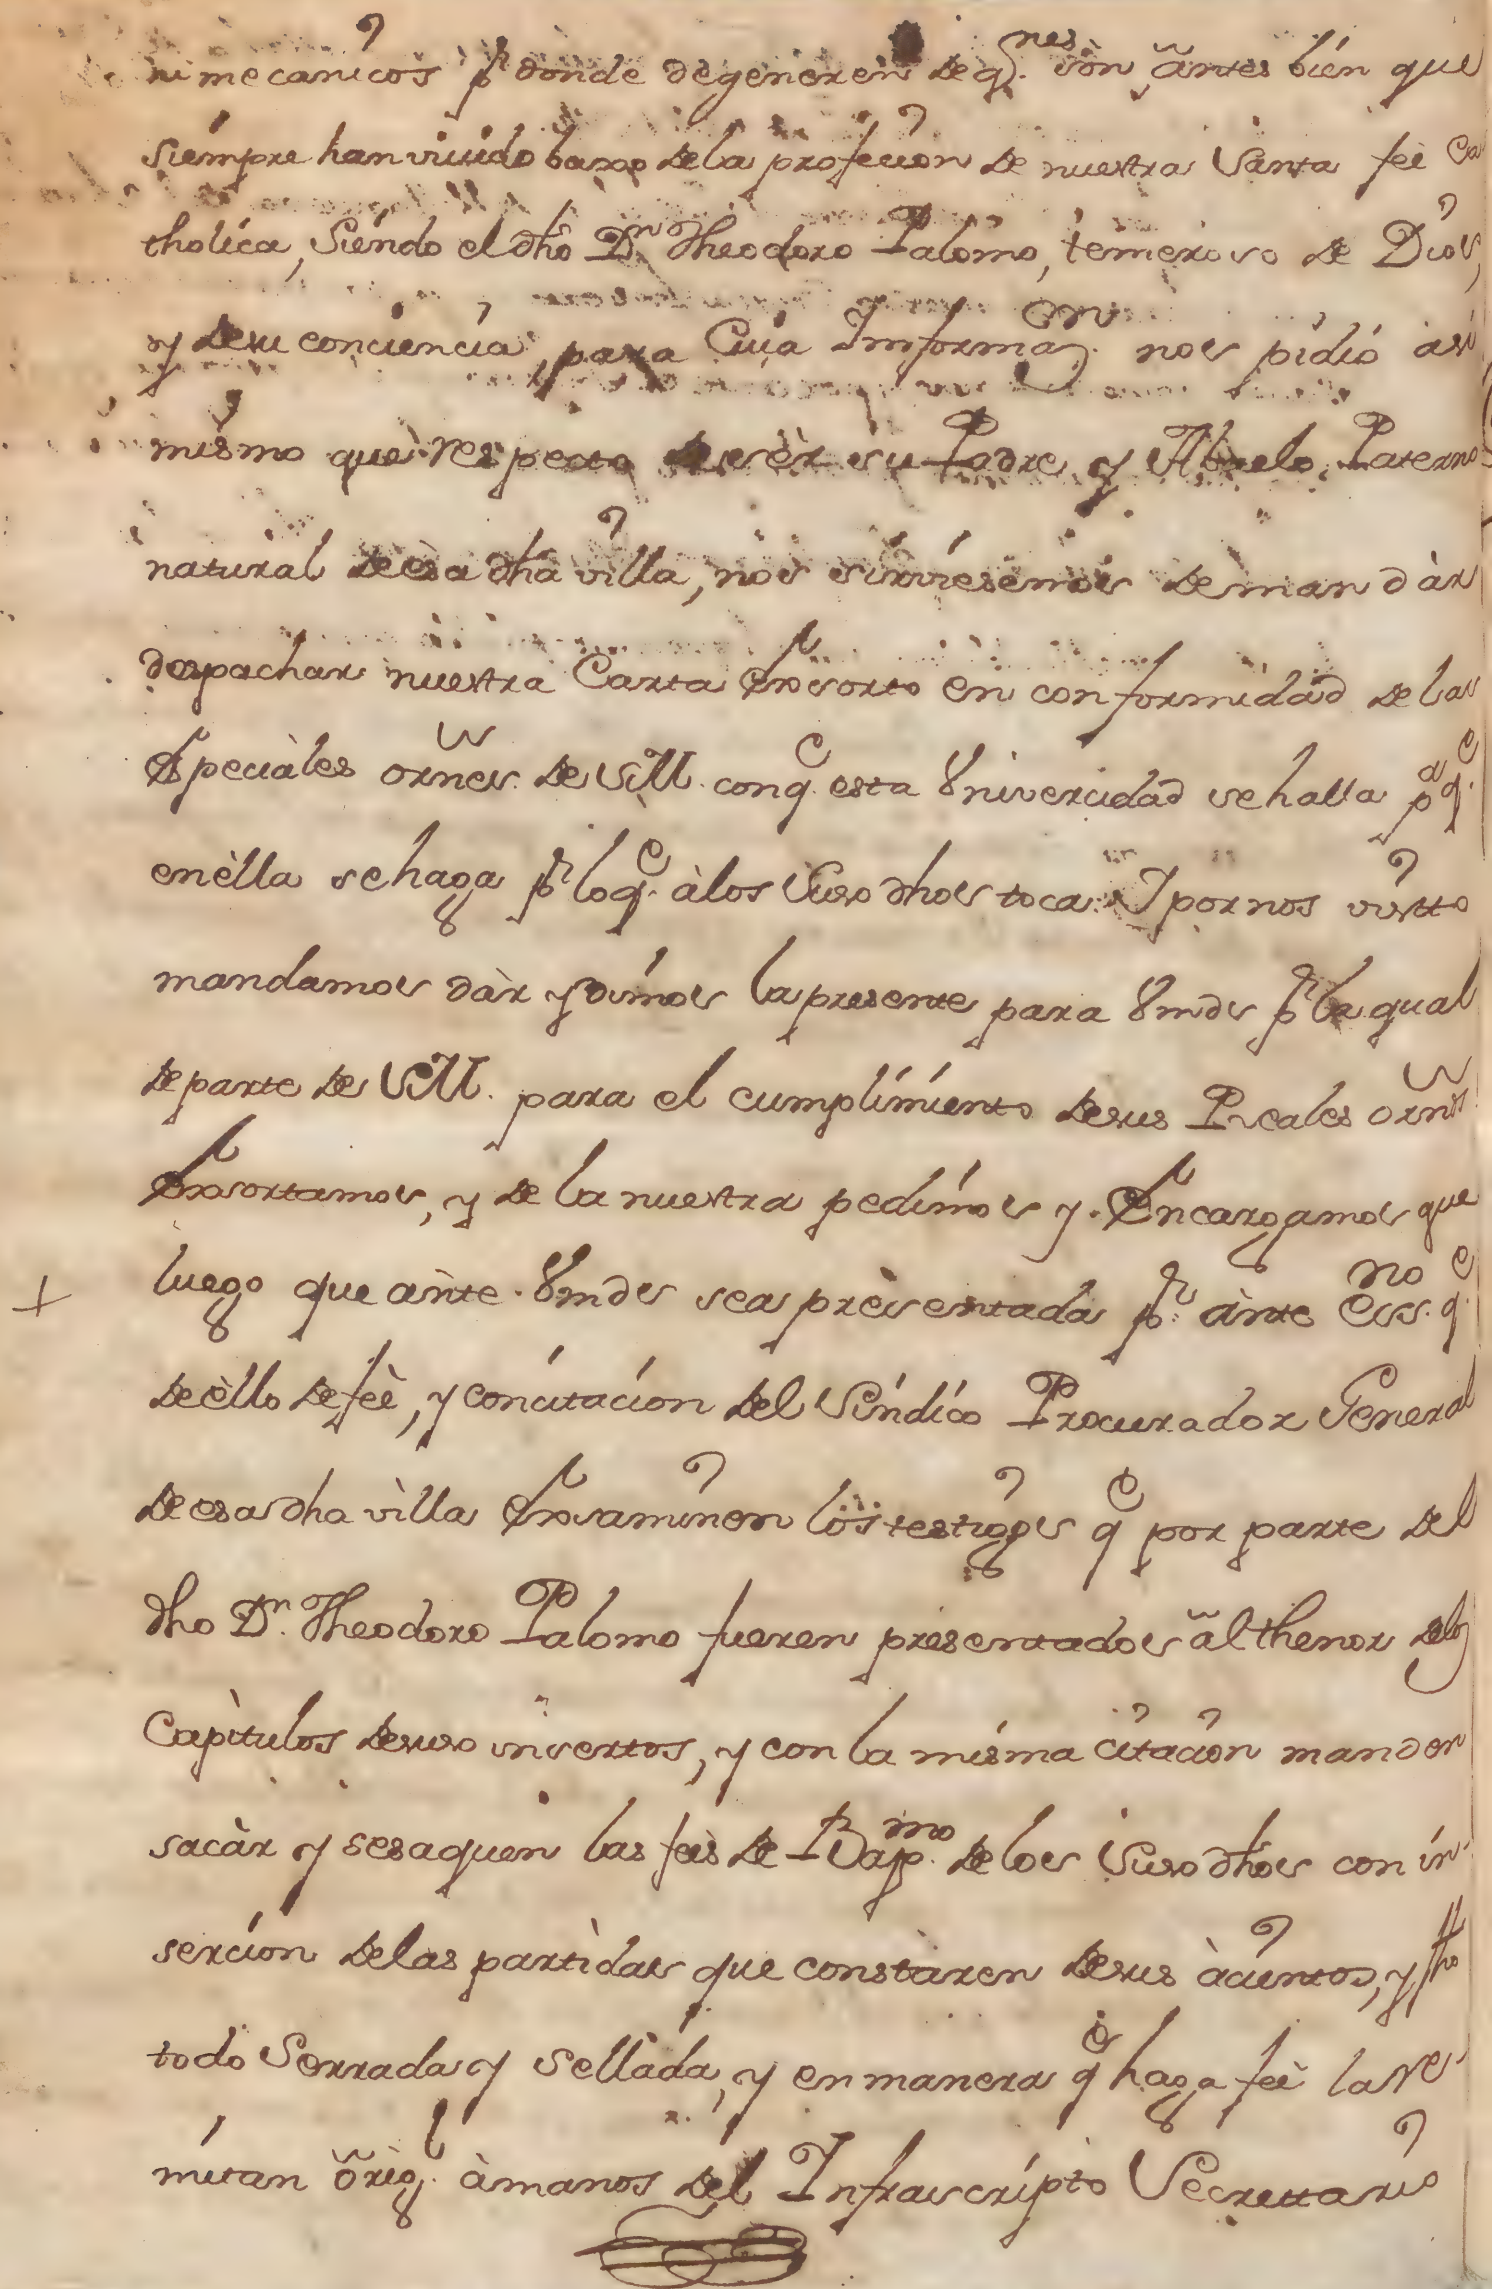 ni mecanicos pr donde degeneren de q.nes son àntes bien que
siempre han vivido baxo de la profecion de nuestra Santa feè Ca
tholica, Siendo el dho Dn Theodoro Palomo, temeroso de Dios,
y de su conciencia, para Cuia Informaz.on nos pidió asi
mismo que respecto de sèr su Padre y Abuelo Paterno
natural de esa dha villa, nos sirviesemos de mandàr
despachar nuestra Carta Exsorto en conformidad de las
Especiàles orñes. de S.M. con q.e esta Univercidad se halla pa q.e
en èlla se haga pr lo q.e à los Suso dhos toca: Y por nos vistto
mandamos dàr y dimos la presente para Vmds pr la qual
de parte de S.M. para el cumplimiento de sus Reales orñs
Exsortamos, y de la nuestra pedimos y Encargamos que
luego que ànte Vmds sea presentada pr. ànte ess.no q.e
de èllo de feè, y con citacion del Síndico Procurador General
de esa dha villa Exsaminen los testigos qe por parte del
dho Dn. Theodoro Palomo fueren presentados àl thenor delos
Capìtulos de suso insertos, y con la misma citacion manden
sacàr y se saquen las feès de Bap.mo de los Suso dhos con in-
sercion de las partìdas que constàren de sus àcientos, y fho
todo Serrada y Sellada, y en manera qe haga feè la re-
mitan òrig.l à manos del Infraescripto Secrettario